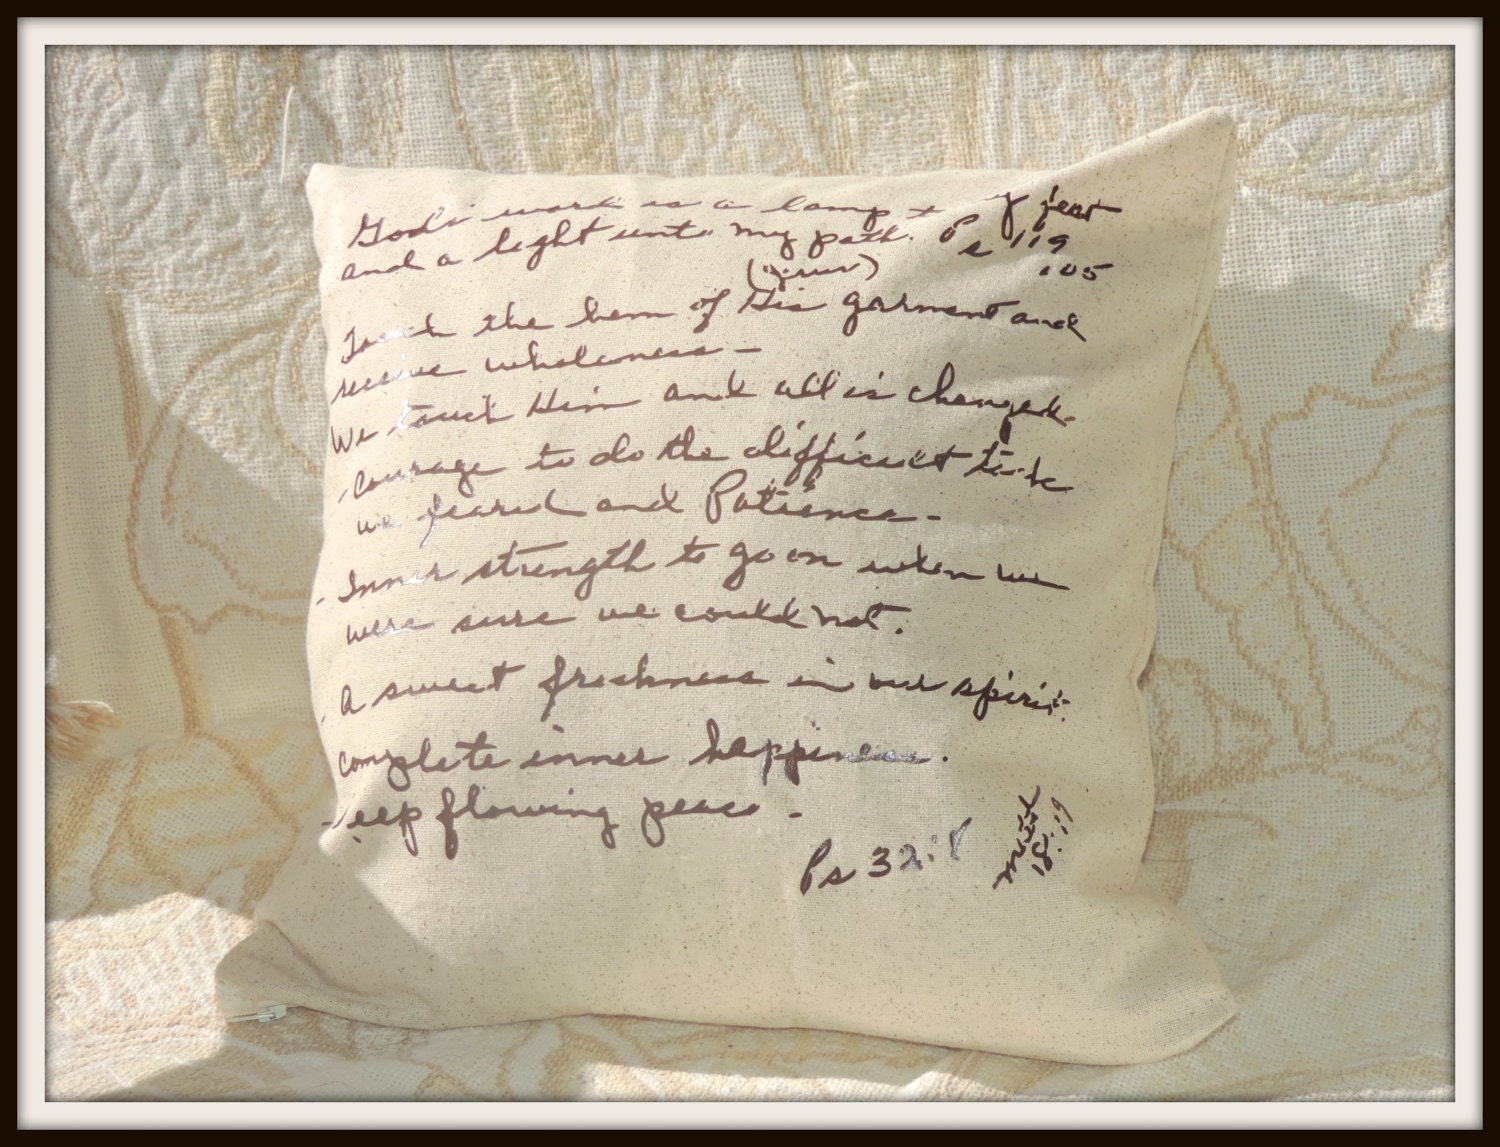 God's word is a lamp t y feet
and a light unto my path. Ps 119
105
(Jesus)
Touch the hem of His garment and
receive wholeness -
We touch Him and all is changed.
- Courage to do the difficult task
we feared and Patience -
- Inner strength to go on when we
were sure we could not.
- A sweet freshness in our spirit.
Complete inner happiness.
- eep flowing peace -
Ps 32:8
Matt
18:19